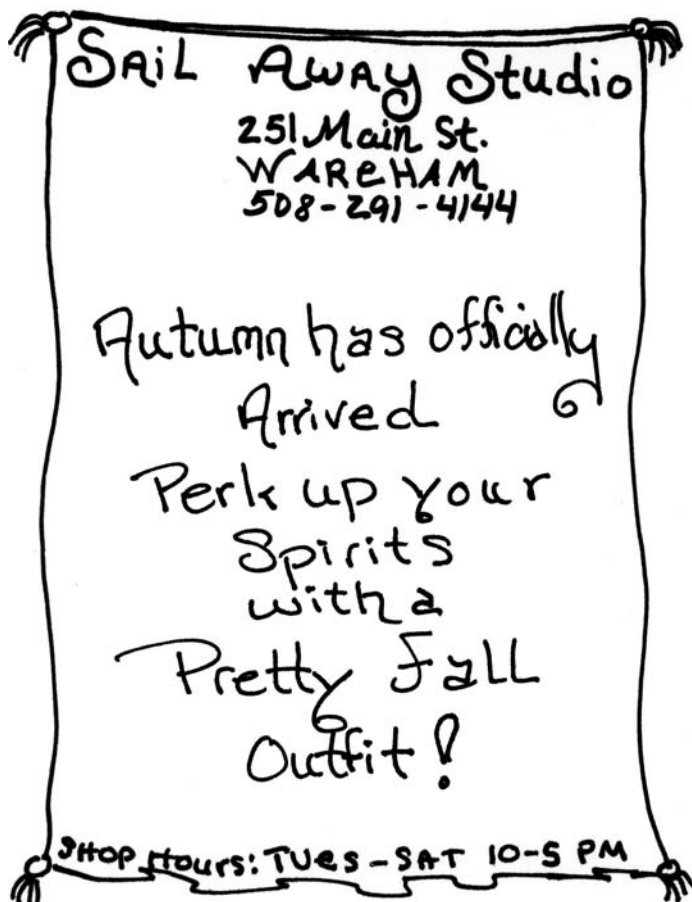 SAiL AWAy Studio
251 Main St.
WAReHAM
508-291-4144
Autumn has officially
Arrived
Perk up your
Spirits
with a
Pretty Fall
Outfit!
SHOP Hours: TUes-SAT 10-5 PM